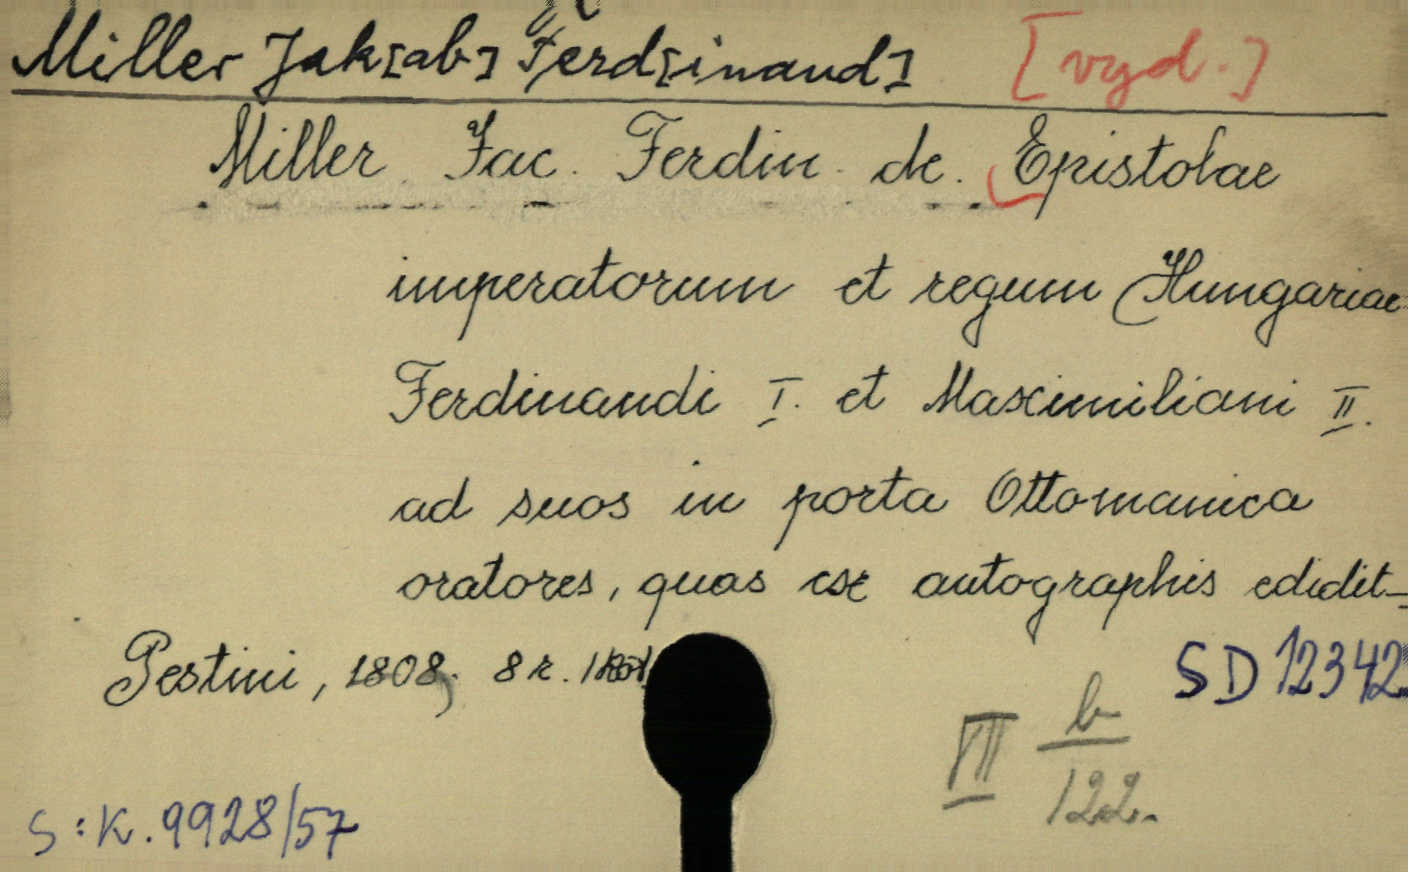 Miller Jak[ab] Ferd[inand] [vyd.]
Miller Jac. Ferdin. de. Epistolae
imperatorum et regum Hungariae
Ferdinandi I. et Maximiliani II.
ad suos in porta Ottomanica
oratores, quas ex autographis edidit_
Pestini, 1808, 8r.
SD 12342
VII b
122.
S:K. 9928/57